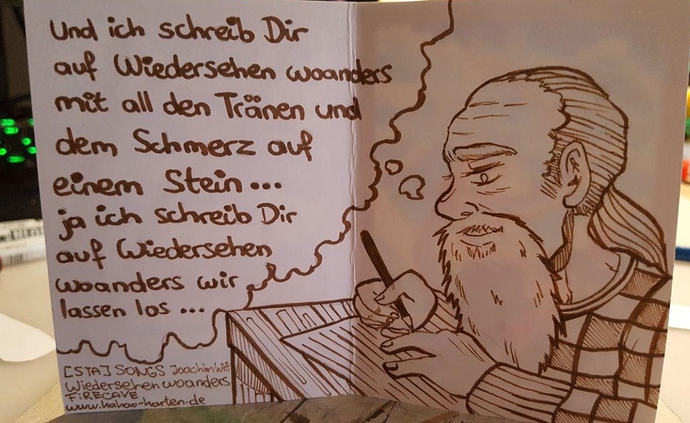 Und ich schreib Dir
auf Wiedersehen woanders
mit all den Tränen und
dem Schmerz auf
einem Stein...
ja ich schreib Dir
auf Wiedersehen
woanders wir
lassen los...
[STA] SONGS Joachim Witt
Wiedersehen woanders
FiRECAVE
www.kakao-karten.de